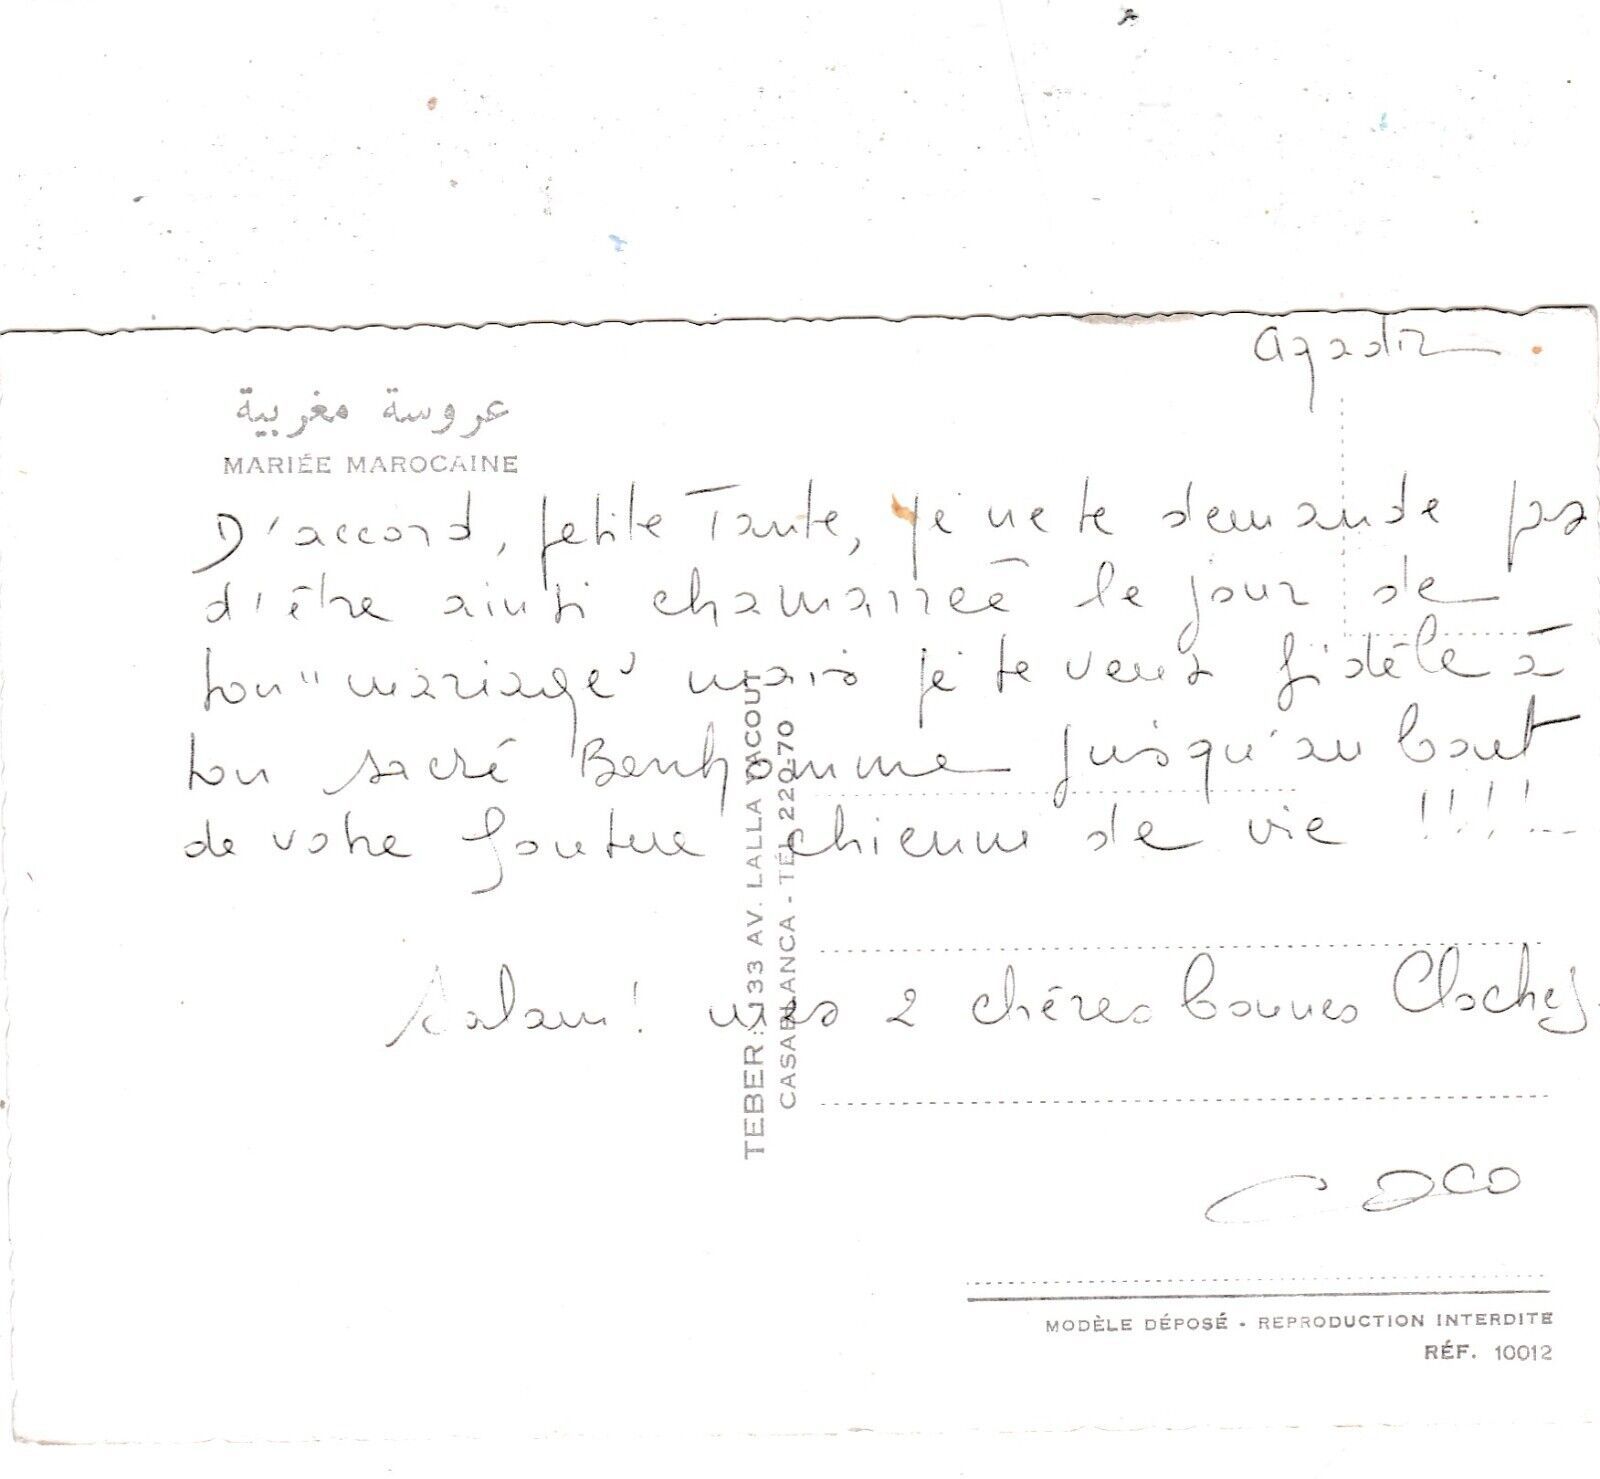 Agadir
عروسة مغربية
MARIÉE MAROCAINE
D'accord, petite Tante, je ne te demande pas
d'être ainsi chamarrée le jour de
ton "mariage" mais je te veux fidèle à
ton sacré Bonhomme jusqu'au bout
de votre foutue chienne de vie !!!!...
Salam! mes 2 chères bonnes Cloches.
Coco
TEBER : 33 AV. LALLA YACOUT
CASABLANCA - TÉL 220-70
MODÈLE DÉPOSÉ - REPRODUCTION INTERDITE
RÉF. 10012